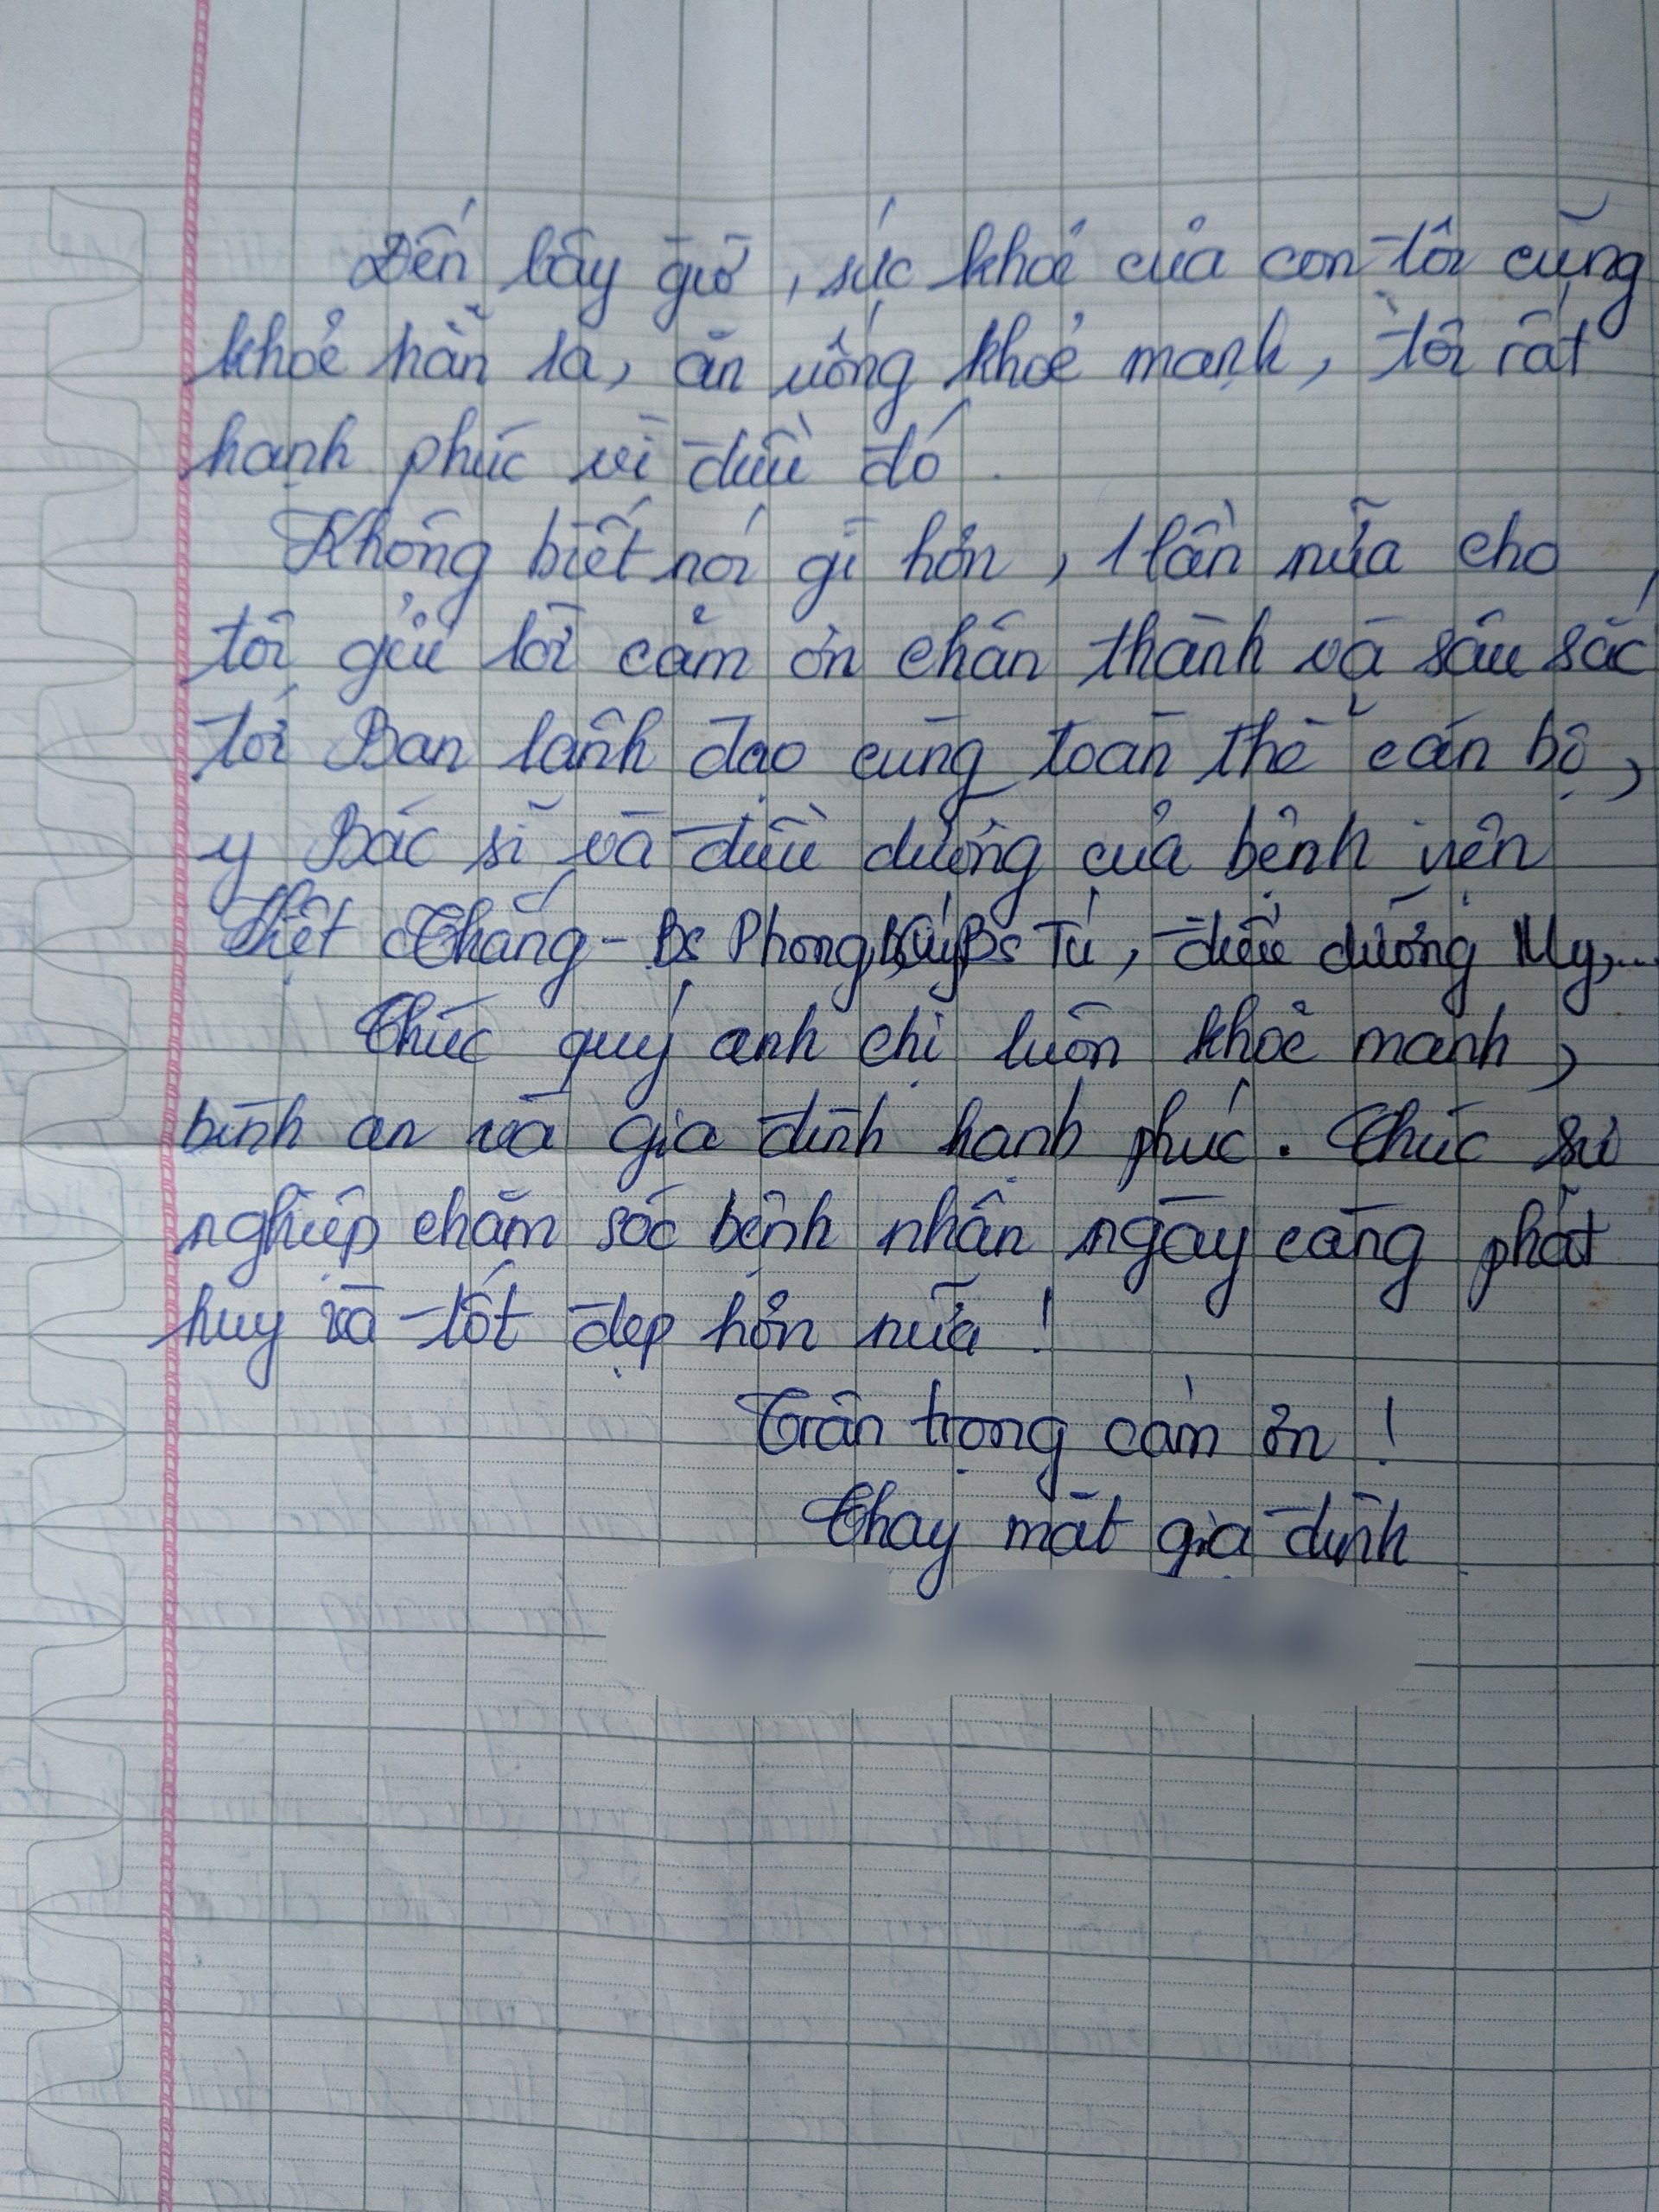 Đến bây giờ, sức khoẻ của con tôi cũng
khoẻ hẳn ra, ăn uống khoẻ mạnh, tôi rất
hạnh phúc vì điều đó.
Không biết nói gì hơn, 1 lần nữa cho
tôi gửi lời cảm ơn chân thành và sâu sắc
tới Ban lãnh đạo cùng toàn thể cán bộ,
y Bác sĩ và điều dưỡng của bệnh viện
Việt Thắng - Bs Phong, Bs Quý, Bs Tú, điều dưỡng My,...
Chúc quý anh chị luôn khoẻ mạnh,
bình an và gia đình hạnh phúc. Chúc sự
nghiệp chăm sóc bệnh nhân ngày càng phát
huy và tốt đẹp hơn nữa!
Trân trọng cảm ơn!
Thay mặt gia đình